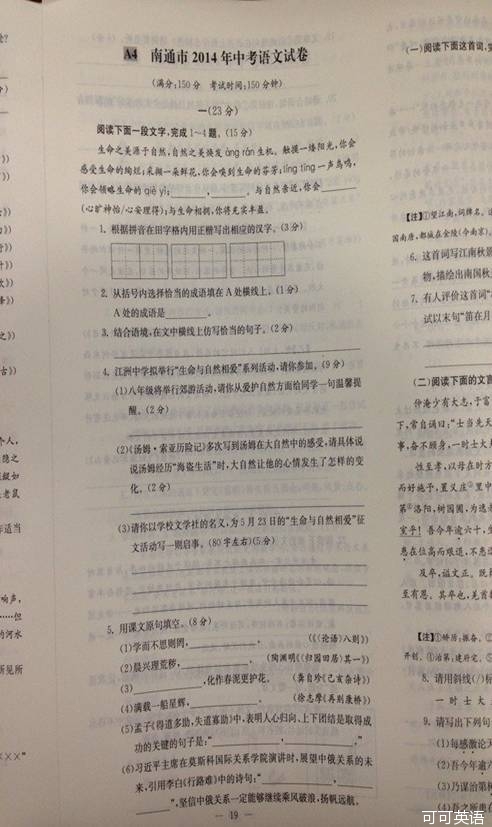 A4 南通市2014年中考语文试卷
(满分:150分 考试时间:150分钟)
一(23分)
阅读下面一段文字,完成1~4题。(15分)
生命之美源于自然,自然之美焕发àng rán生机。触摸一缕阳光,你会
感受生命的绚烂;采撷一朵鲜花,你会嗅到生命的芬芳;líng tīng一声鸟鸣,
你会领略生命的qiè yì;______,______。与自然亲近,你会______
(心旷神怡/心安理得);与生命相拥,你将充实丰盈。
1. 根据拼音在田字格内用正楷写出相应的汉字。(3分)
2. 从括号内选择恰当的成语填在A处横线上。(1分)
A处的成语是______。
3. 结合语境,在文中横线上仿写恰当的句子。(2分)
4. 江洲中学拟举行“生命与自然相爱”系列活动,请你参加。(9分)
(1)八年级将举行郊游活动,请你从爱护自然方面给同学一句温馨提
醒。(2分)
(2)《汤姆·索亚历险记》多次写到汤姆在大自然中的感受,请具体说
说汤姆经历“海盗生活”时,大自然让他的心情发生了怎样的变
化。(2分)
(3)请你以学校文学社的名义,为5月23日的“生命与自然相爱”征
文活动写一则启事。(80字左右)(5分)
5. 用课文原句填空。(8分)
(1)学而不思则罔,______。 (《〈论语〉八则》)
(2)晨兴理荒秽,______。 (陶渊明《〈归园田居〉其一》)
(3)______,化作春泥更护花。 (龚自珍《己亥杂诗》)
(4)满载一船星辉,______。 (徐志摩《再别康桥》)
(5)孟子《得道多助,失道寡助》中,表明人心归向、上下团结是取得成
功的关键的句子是:“______,______。”
(6)习近平主席在莫斯科国际关系学院演讲时,展望中俄关系的未
来,引用李白《行路难》中的诗句:“______,______
”,坚信中俄关系一定能够继续乘风破浪、扬帆远航。
— 19 —
(一)阅读下面这首词,
【注】①望江南,词牌名。
国南唐,都城在金陵(今南京)。
6. 这首词写江南秋景
物,描绘出南国秋
7. 有人评价这首词“
试以末句“笛在月
(二)阅读下面的文言
仲淹少有大志,于富
下,常自诵曰:“士当先天
事,奋不顾身,一时士大
性至孝,以母在时方
而好施予,置义庄②里中
第④洛阳,树园圃,为逸老
室乎!吾今年逾六十,生
患在位高而艰退,不患退
及卒,谥文正。既
至有恩。其卒也,羌首
8. 请用斜线(/)标
一 时 士 大
9. 请写出下列句
(1)每感激论天
(2)吾今年逾六
(3)乃谋治第树
(4)吾之所患在
可可英语